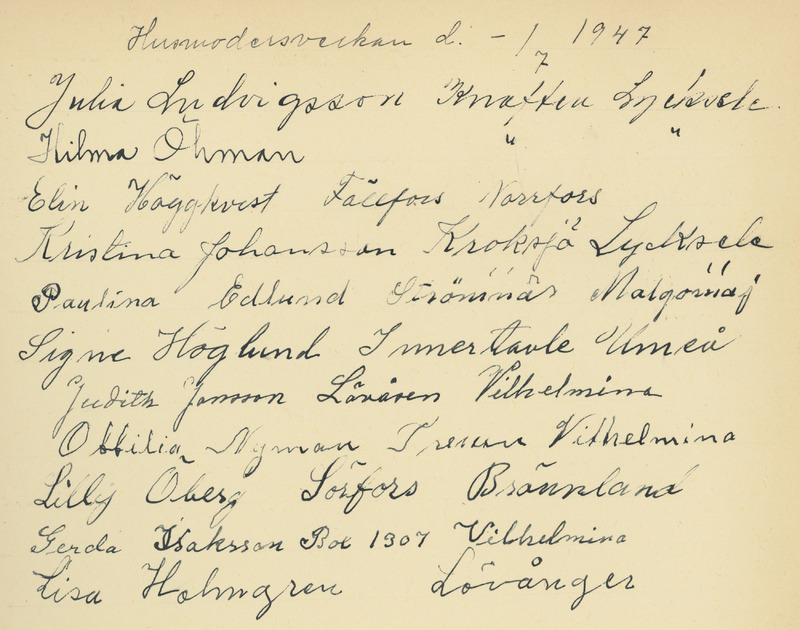 Husmodersveckan d. - 1/7 1947
Julia Ludvigsson Knaften Lycksele.
Hilma Öhman " "
Elin Häggkvist Fällfors Norrfors
Kristina Johansson Kroksjö Lycksele
Paulina Edlund Strömnäs Malgomaj
Signe Höglund Innertavle Umeå
Judith Jonsson Lövåsen Vilhelmina
Ottilia Nyman Vilhelmina
Lilly Öberg Sörfors Brännland
Gerda Isaksson Box 1307 Vilhelmina
Lisa Holmgren Lövånger